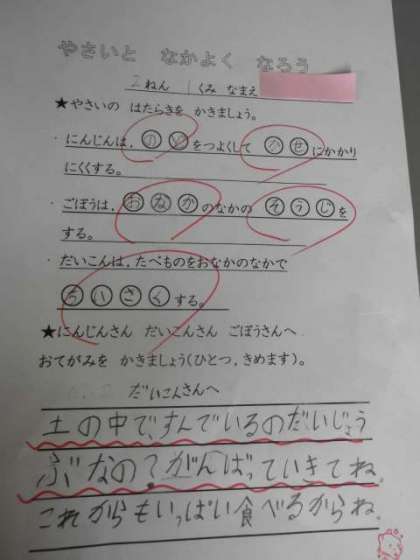 やさいと なかよく なろう
2ねん 1くみ なまえ
★やさいの はたらきを かきましょう。
・にんじんは、のどをつよくして かぜにかかり
にくくする。
・ごぼうは、おなかのなかの そうじを
する。
・だいこんは、たべものをおなかのなかで
ちいさくする。
★にんじんさん だいこんさん ごぼうさんへ
おてがみを かきましょう(ひとつ、きめます)。
だいこんさんへ
土の中で、すんでいるのだいじょう
ぶなの?がんばっていきてね。
これからもいっぱい食べるからね。